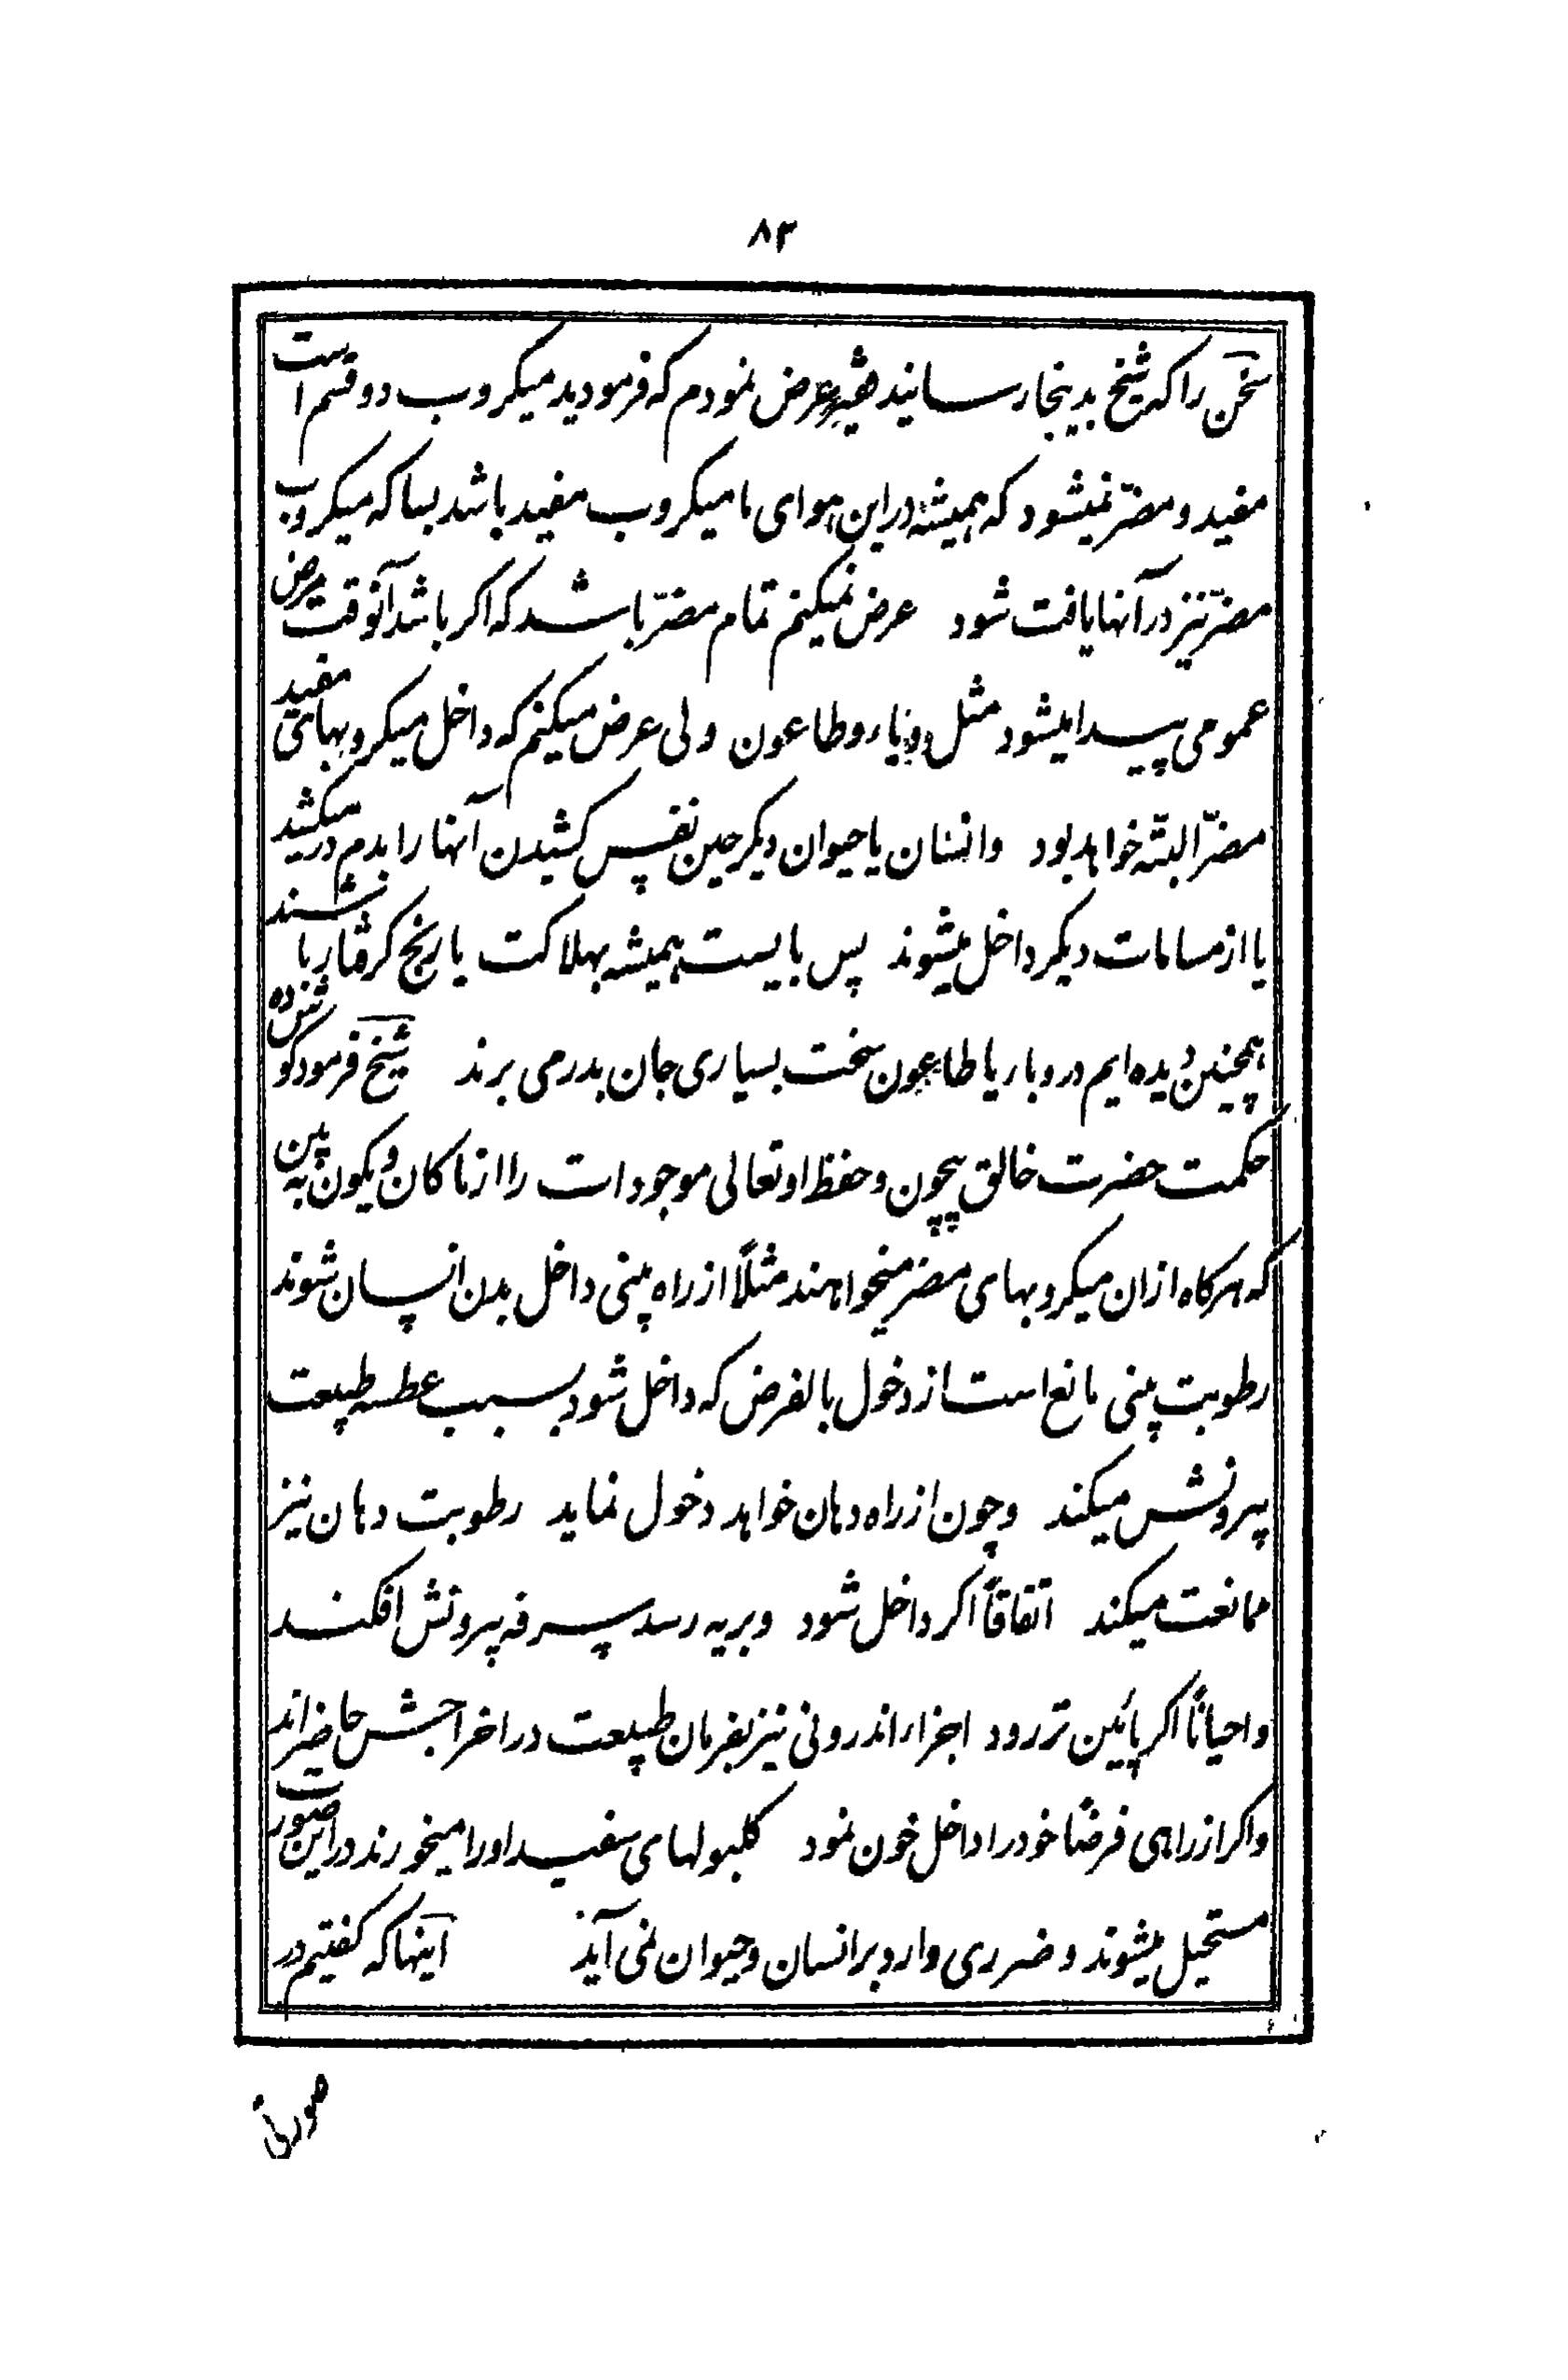 ۸۳
سخن را که شیخ بدینجا رسانید عرض نمودم که فرمودید میکروب دو قسم است
مفید و مضرّ نمیشود که همیشه در این هوای ما میکروب مفید باشد بسا که میکروب
مضرّ نیز در آنها یافت شود عرض نمیکنم تمام مضرّ باشد که اکر باشد آنوقت مرض
عمومی پیدا میشود مثل وبا و طاعون ولی عرض میکنم که داخل میکروبهای مفید
مضرّ البتّه خواهد بود و انسان یا حیوان دیکر حین نفس کشیدن آنها را بدم در میکشد
یا از مسامات دیکر داخل میشوند پس بایست همیشه بهلاکت یا رنج کرفتار باشند
همچنین دیده ایم در وبا یا طاعون سخت بسیاری جان بدر می برند شیخ فرمود کو
حکمت حضرت خالق بیچون و حفظ او تعالی موجودات را از ما کان و یکون به بین
که هرکاه ازان میکروبهای مضرّ میخواهند مثلاً از راه بینی داخل بدن انسان شوند
رطوبت بینی مانع است از دخول بالفرض که داخل شود بسبب عطسه طبیعت
بیرونش میکند و چون از راه دهان خواهد دخول نماید رطوبت دهان نیز
ممانعت میکند اتفاقاً اکر داخل شود و بریه رسد سرفه بیرونش افکند
و احیاناً اکر پائین تر رود اجزاء اندرونی نیز بفرمان طبیعت در اخراجش حاضراند
و اکر از راهی فرضاً خود را داخل خون نمود کلبولهای سفید او را میخورند در این صورت
مستحیل میشوند و ضرری وارد بر انسان و حیوان نمی آید اینها که کفتیم در
صورتی